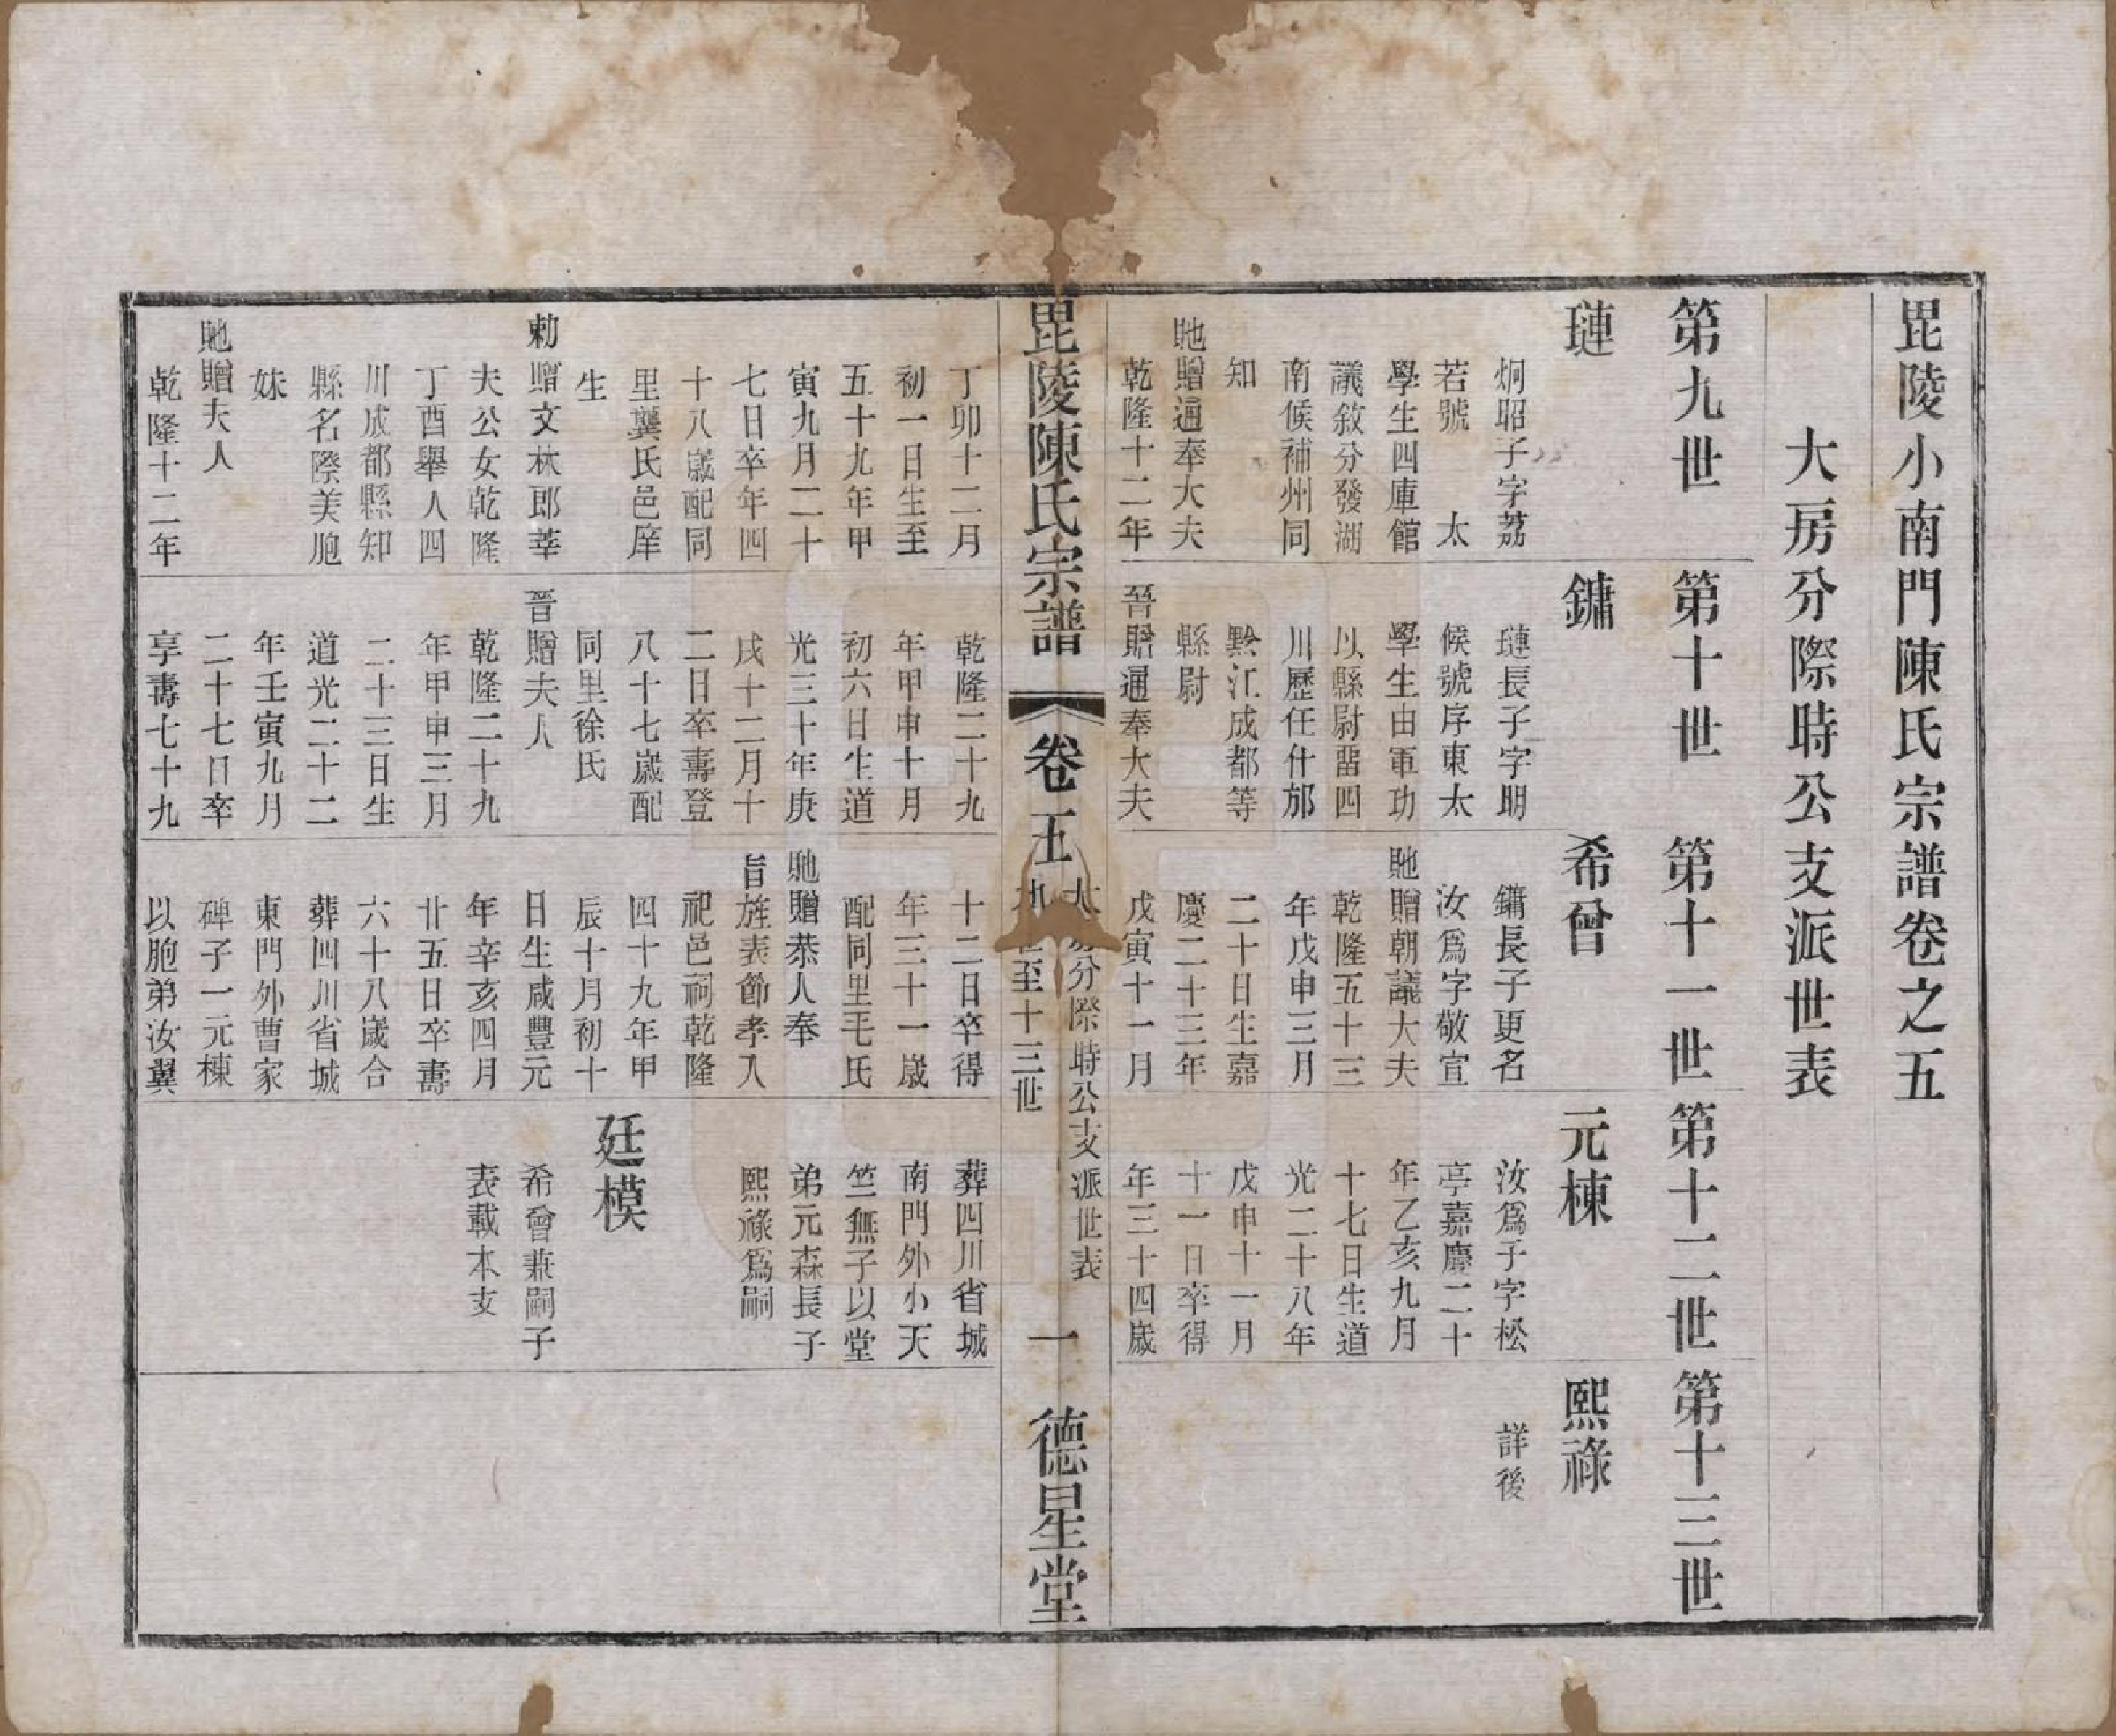 毘陵小南門陳氏宗譜卷之五
大房分際時公支派世表
第九世
璉
炯昭子字荔
若號 太
學生四庫館
議敘分發湖
南候補州同
知
貤贈通奉大夫
乾隆十二年
丁卯十二月
初一日生至
五十九年甲
寅九月二十
七日卒年四
十八歲配同
里龔氏邑庠
生
勅贈文林郎莘
夫公女乾隆
丁酉舉人四
川成都縣知
縣名際美胞
妹
貤贈夫人
乾隆十二年
第十世
鏞
璉長子字朋
候號序東太
學生由軍功
以縣尉畱四
川歷任什邡
黔江成都等
縣尉
晉贈通奉大夫
乾隆二十九
年甲申十月
初六日生道
光三十年庚
戌十二月十
二日卒壽登
八十七歲配
同里徐氏
晉贈夫人
乾隆二十九
年甲申三月
二十三日生
道光二十二
年壬寅九月
二十七日卒
享壽七十九
第十一世
希曾
鏞長子更名
汝爲字敬宣
貤贈朝議大夫
乾隆五十三
年戊申三月
二十日生嘉
慶二十三年
戊寅十一月
十二日卒得
年三十一歲
配同里毛氏
貤贈恭人奉
旨旌表節孝入
祀邑祠乾隆
四十九年甲
辰十月初十
日生咸豐元
年辛亥四月
廿五日卒壽
六十八歲合
葬四川省城
東門外曹家
碑子一元棟
以胞弟汝翼
第十二世
元棟
汝爲子字松
亭嘉慶二十
年乙亥九月
十七日生道
光二十八年
戊申十一月
十一日卒得
年三十四歲
葬四川省城
南門外小天
竺無子以堂
弟元森長子
熙祿爲嗣
廷模
希曾兼嗣子
表載本支
第十三世
熙祿
詳後
毘陵陳氏宗譜
卷五
大房分際時公支派世表
九世至十三世
一
德星堂